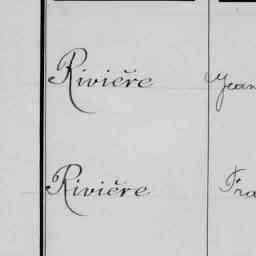 Rivière Jean
Rivière Fra